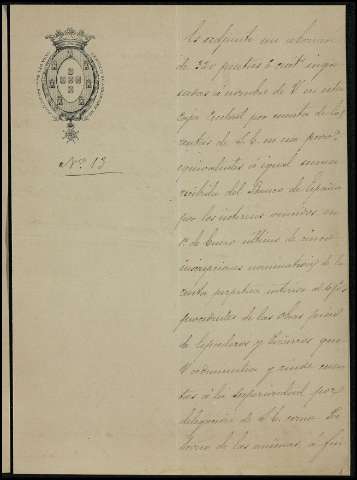 Nº 13
Es adjunto un abonaré
de 320 pesetas 6 cents ingre-
sadas a nombre de V en esta
Caja Central por cuenta de las
rentas de S. E. en esa prova.
equivalentes á igual suma
recibida del Banco de España
por los intereses vencidos en
1º de Enero último de cinco
inscripciones nominativas de la
renta perpetua interior al 4 p%
procedentes de las Obras pias
de y que
V administra y rinde cuen-
tas á la superioridad por
delegación de S. E. como Pa-
trono de las mismas, á fin